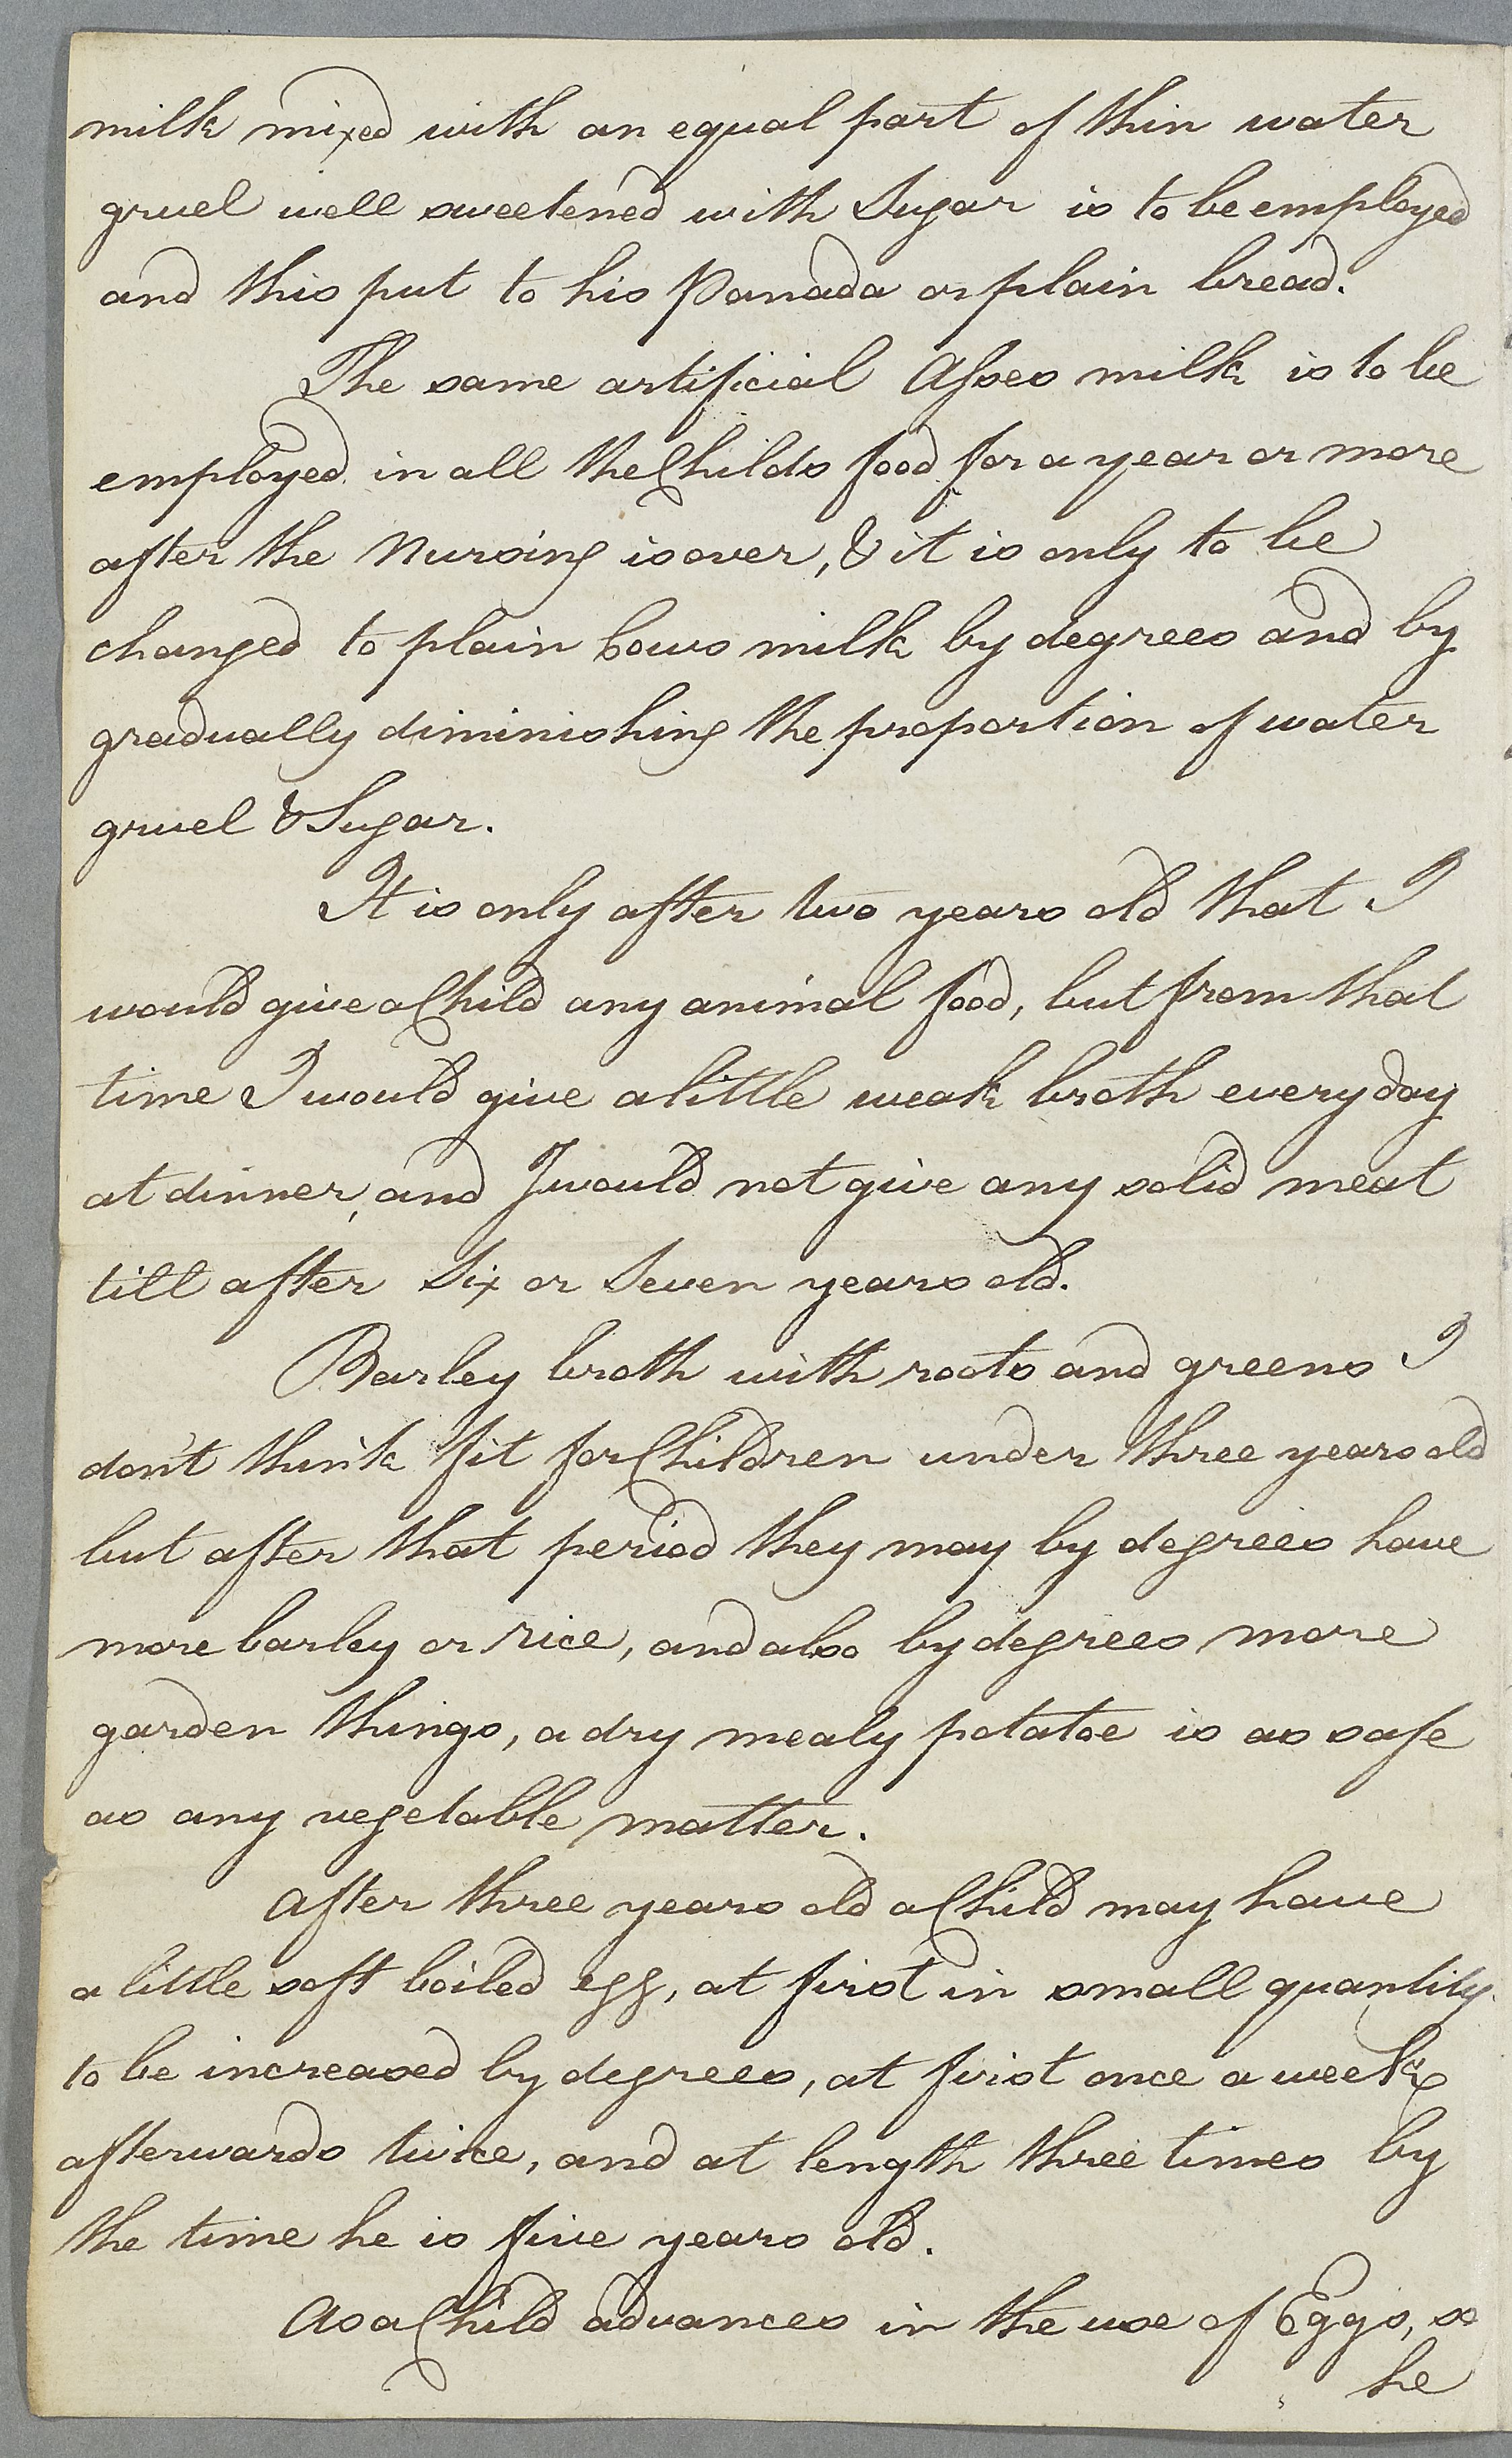 milk mixed with an equal part of thin water
gruel well sweetened with Sugar is to be employed
and this put to his Panada or plain bread.
The same artificial Asses milk is to be
employed in all the Childs food for a year or more
after the Nursing is over, & it is only to be
changed to plain Cows milk by degrees and by
gradually diminishing the proportion of water
gruel & Sugar.
It is only after two years old that I
would give a Child any animal food, but from that
time I would give a little weak broth every day
at dinner, and I would not give any solid meat
till after Six or Seven years old.
Barley broth with roots and greens I
don't think fit for Children under three years old
but after that period they may by degrees have
more barley or rice, and also by degrees more
garden things, a dry mealy potatoe is as safe
as any vegetable matter.
After three years old a Child may have
a little soft boiled egg, at first in small quantity
to be increased by degrees, at first once a week
afterwards twice, and at length three times by
the time he is five years old.
As a Child advances in the use of Eggs, so
he